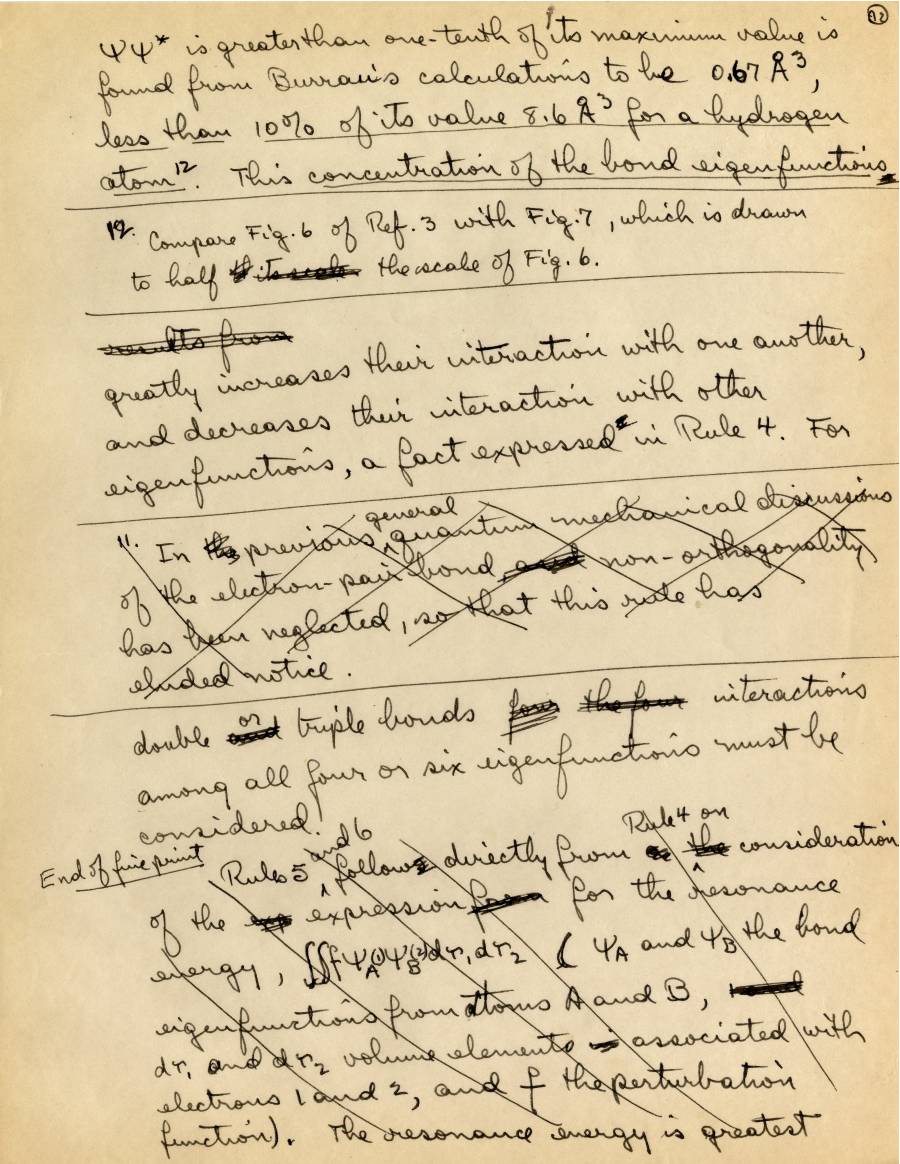 12
ΨΨ* is greater than one-tenth of its maximum value is
found from Burrau's calculations to be 0.67 Å³,
less than 10% of its value 8.6 Å³ for a hydrogen
atom¹². This concentration of the bond eigenfunctions
12. Compare Fig. 6 of Ref. 3 with Fig. 7, which is drawn
to half its scale the scale of Fig. 6.
results from
greatly increases their interaction with one another,
and decreases their interaction with other
eigenfunctions, a fact expressed in Rule 4. For
general
11. In the previous quantum mechanical discussions
of the electron-pair bond, and non-orthogonality
has been neglected, so that this rule has
eluded notice.
or
double and triple bonds four the four interactions
among all four or six eigenfunctions must be
considered.
End of fine print
and 6 Rule 4 on
Rules 5 ∧ follows directly from the ∧ consideration
of the exp expression for the resonance
energy, ∫∫∫ f Ψ_A(1) Ψ_B(2) dτ₁ dτ₂ ( Ψ_A and Ψ_B the bond
eigenfunctions from atoms A and B,
dτ₁ and dτ₂ volume elements associated with
electrons 1 and 2, and f the perturbation
function). The resonance energy is greatest